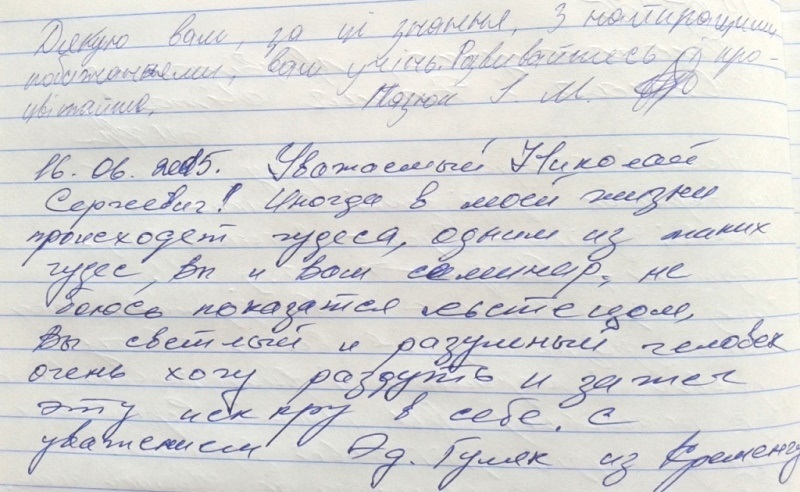 Дякую вам, за ці знання, З найкращими
побажаннями, ваш учень. Розвивайтесь і про-
цвітайте. І. М.
16.06.2015. Уважаемый Николай
Сергеевич! Иногда в моей жизни
происходят чудеса, одним из таких
чудес, Вы и Ваш семинар, не
боюсь показатся льстецом,
Вы светлый и разумный человек
очень хочу раздуть и зажеч
эту искру в себе. С
уважением Эд. Гуляк из Кременчу